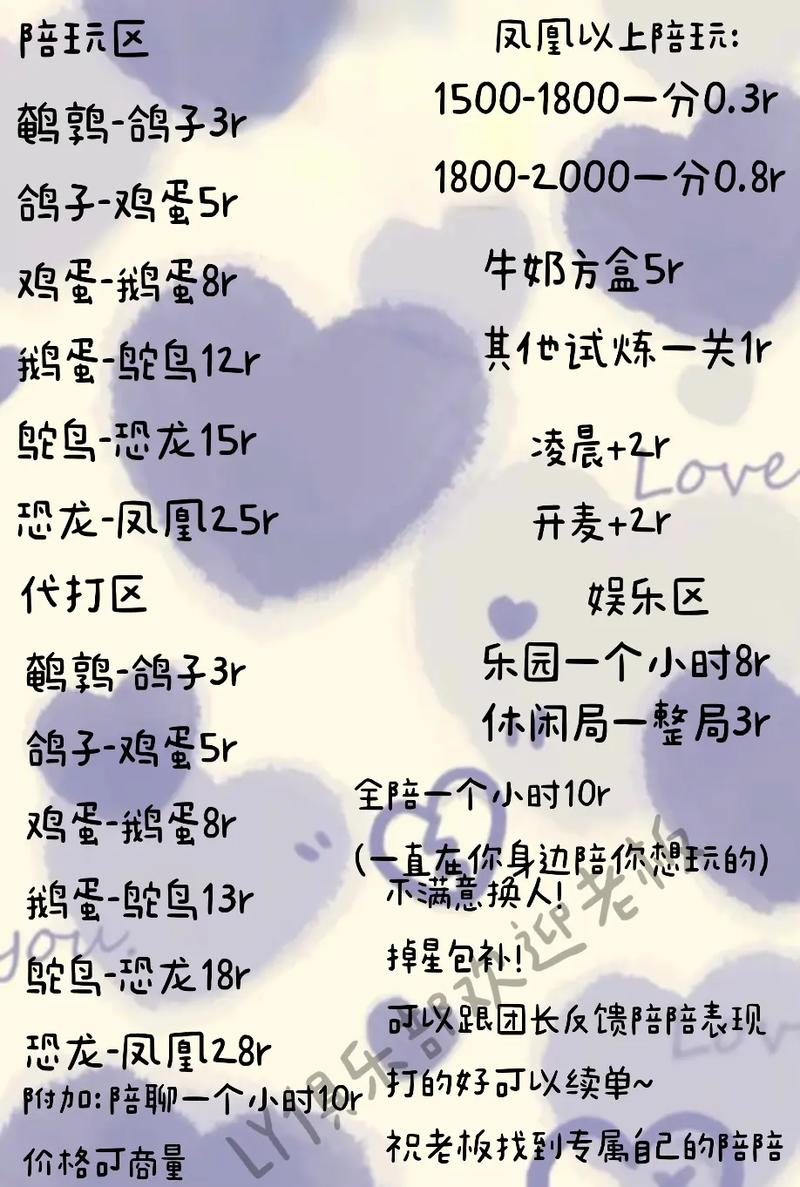 陪玩区
鹌鹑-鸽子3r
鸽子-鸡蛋5r
鸡蛋-鹅蛋8r
鹅蛋-鸵鸟12r
鸵鸟-恐龙15r
恐龙-凤凰25r
代打区
鹌鹑-鸽子3r
鸽子-鸡蛋5r
鸡蛋-鹅蛋8r
鹅蛋-鸵鸟13r
鸵鸟-恐龙18r
恐龙-凤凰28r
附加:陪聊一个小时10r
价格可商量
凤凰以上陪玩:
1500-1800一分0.3r
1800-2000一分0.8r
牛奶方盒5r
其他试炼一关1r
凌晨+2r
开麦+2r
娱乐区
乐园一个小时8r
休闲局一整局3r
全陪一个小时10r
(一直在你身边陪你想玩的)
不满意换人!
掉星包补!
可以跟团长反馈陪陪表现
打的好可以续单~
祝老板找到专属自己的陪陪
LY俱乐部欢迎老板
Love
you.
Lov